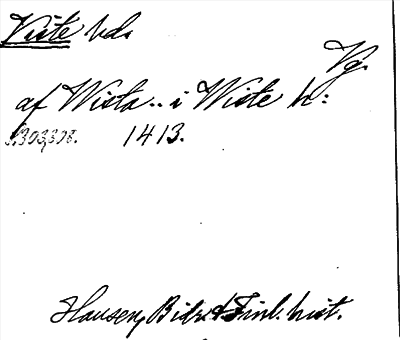 Viste hd.
Vg.
af Wista.. i Wiste h:
s. 303, 308. 1413.
Hausen, Bidr. t. Finl. hist.